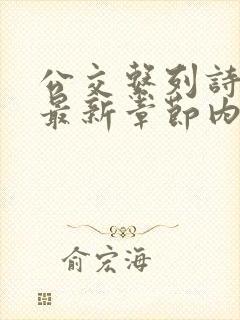 公交繫列詩
最新章節內
俞宏海